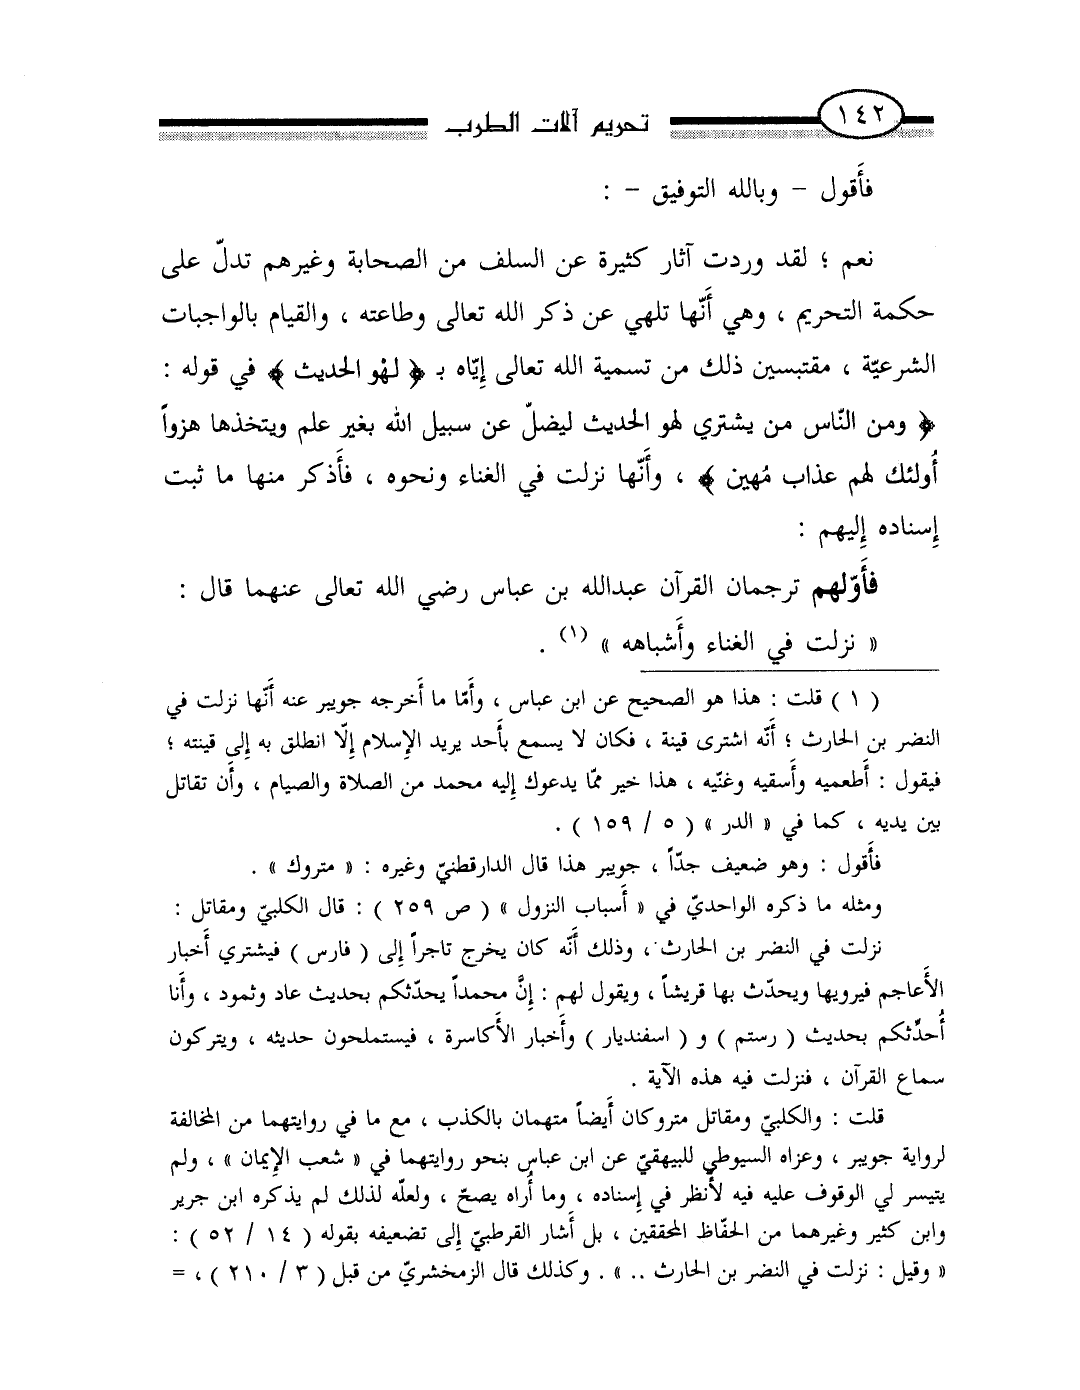 ١٤٢
تحريم آلات الطرب
فأَقول – وبالله التوفيق – :
نعم ؛ لقد وردت آثار كثيرة عن السلف من الصحابة وغيرهم تدلّ على
حكمة التحريم ، وهي أَنّها تلهي عن ذكر الله تعالى وطاعته ، والقيام بالواجبات
الشرعيّة ، مقتبسين ذلك من تسمية الله تعالى إِيّاه بـ ﴿ لهْو الحديث ﴾ في قوله :
﴿ ومن النّاس من يشتري لهو الحديث ليضلّ عن سبيل الله بغير علم ويتخذها هزواً
أُولئك لهم عذاب مُهين ﴾ ، وأَنّها نزلت في الغناء ونحوه ، فأَذكر منها ما ثبت
إِسناده إِليهم :
فأَوّلهم ترجمان القرآن عبدالله بن عباس رضي الله تعالى عنهما قال :
« نزلت في الغناء وأَشباهه » (١) .
( ١ ) قلت : هذا هو الصحيح عن ابن عباس ، وأَمّا ما أَخرجه جويبر عنه أَنّها نزلت في
النضر بن الحارث ؛ أَنّه اشترى قينة ، فكان لا يسمع بأَحد يريد الإِسلام إِلّا انطلق به إِلى قينته ؛
فيقول : أَطعميه وأَسقيه وغنّيه ، هذا خير ممّا يدعوك إِليه محمد من الصلاة والصيام ، وأَن تقاتل
بين يديه ، كما في « الدر » ( ٥ / ١٥٩ ) .
فأَقول : وهو ضعيف جدّاً ، جويبر هذا قال الدارقطنيّ وغيره : « متروك » .
ومثله ما ذكره الواحديّ في « أَسباب النزول » ( ص ٢٥٩ ) : قال الكلبيّ ومقاتل :
نزلت في النضر بن الحارث ، وذلك أَنّه كان يخرج تاجراً إِلى ( فارس ) فيشتري أَخبار
الأَعاجم فيرويها ويحدّث بها قريشاً ، ويقول لهم : إِنَّ محمداً يحدّثكم بحديث عاد وثمود ، وأَنا
أُحدِّثكم بحديث ( رستم ) و ( اسفنديار ) وأَخبار الأَكاسرة ، فيستملحون حديثه ، ويتركون
سماع القرآن ، فنزلت فيه هذه الآية .
قلت : والكلبيّ ومقاتل متروكان أَيضاً متهمان بالكذب ، مع ما في روايتهما من المخالفة
لرواية جويبر ، وعزاه السيوطي للبيهقيّ عن ابن عباس بنحو روايتهما في « شعب الإِيمان » ، ولم
يتيسر لي الوقوف عليه فيه لأَنظر في إِسناده ، وما أُراه يصحّ ، ولعلّه لذلك لم يذكره ابن جرير
وابن كثير وغيرهما من الحفّاظ المحققين ، بل أَشار القرطبيّ إِلى تضعيفه بقوله ( ١٤ / ٥٢ ) :
« وقيل : نزلت في النضر بن الحارث .. » . وكذلك قال الزمخشريّ من قبل ( ٣ / ٢١٠ ) ، =